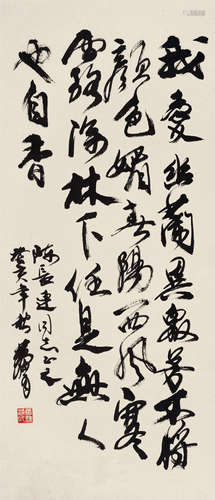 我爱幽兰异众芳不将
颜色媚春阳西风寒
露深林下任是无人
也自香
陈长连同志正之
癸亥年秋